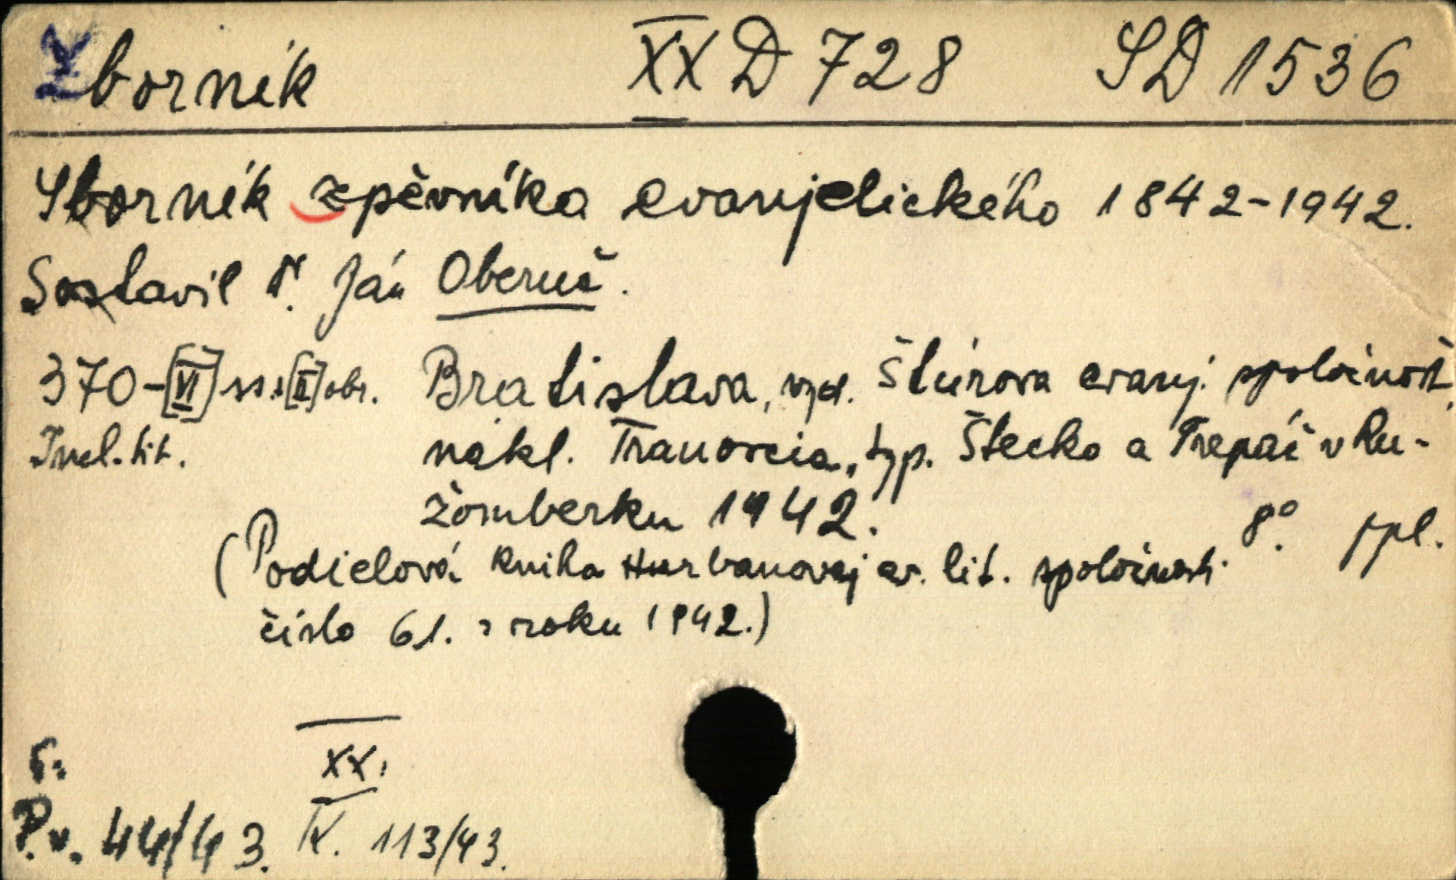 Zborník XX D 728 SD 1536
Sborník zpěvníka evanjelického 1842-1942.
Sostavil Ján Oberuč.
370-[VI] ss.+[II] obr. Bratislava, vyd. Štúrova evanj. spoločnosť,
Incl. tit. nákl. Tranoscia, typ. Štecko a Trepáč v Ru-
žomberku 1942. 8°. ppl.
(Podielová kniha Hurbanovej ev. lit. spoločnosti.
číslo 61. z roku 1942.)
XX.
P.v. 44/43. IV. 113/43.